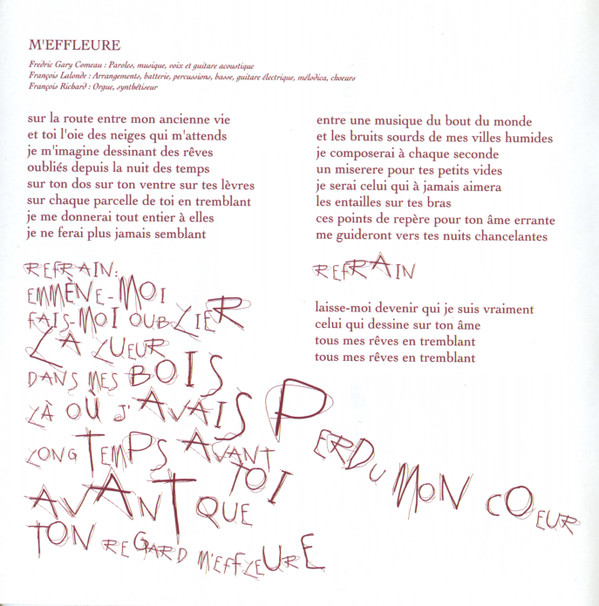 M'EFFLEURE
Fredric Gary Comeau : Paroles, musique, voix et guitare acoustique
François Lalonde : Arrangements, batterie, percussions, basse, guitare électrique, mélodica, choeurs
François Richard : Orgue, synthétiseur
sur la route entre mon ancienne vie
et toi l'oie des neiges qui m'attends
je m'imagine dessinant des rêves
oubliés depuis la nuit des temps
sur ton dos sur ton ventre sur tes lèvres
sur chaque parcelle de toi en tremblant
je me donnerai tout entier à elles
je ne ferai plus jamais semblant
REFRAIN:
EMMÈNE-MOI
FAIS-MOI OUBLIER
LA LUEUR
DANS MES BOIS
LÀ OÙ J'AVAIS PERDU MON COEUR
LONGTEMPS AVANT
TOI
AVANT QUE
TON REGARD M'EFFLEURE
entre une musique du bout du monde
et les bruits sourds de mes villes humides
je composerai à chaque seconde
un miserere pour tes petits vides
je serai celui qui à jamais aimera
les entailles sur tes bras
ces points de repère pour ton âme errante
me guideront vers tes nuits chancelantes
REFRAIN
laisse-moi devenir qui je suis vraiment
celui qui dessine sur ton âme
tous mes rêves en tremblant
tous mes rêves en tremblant